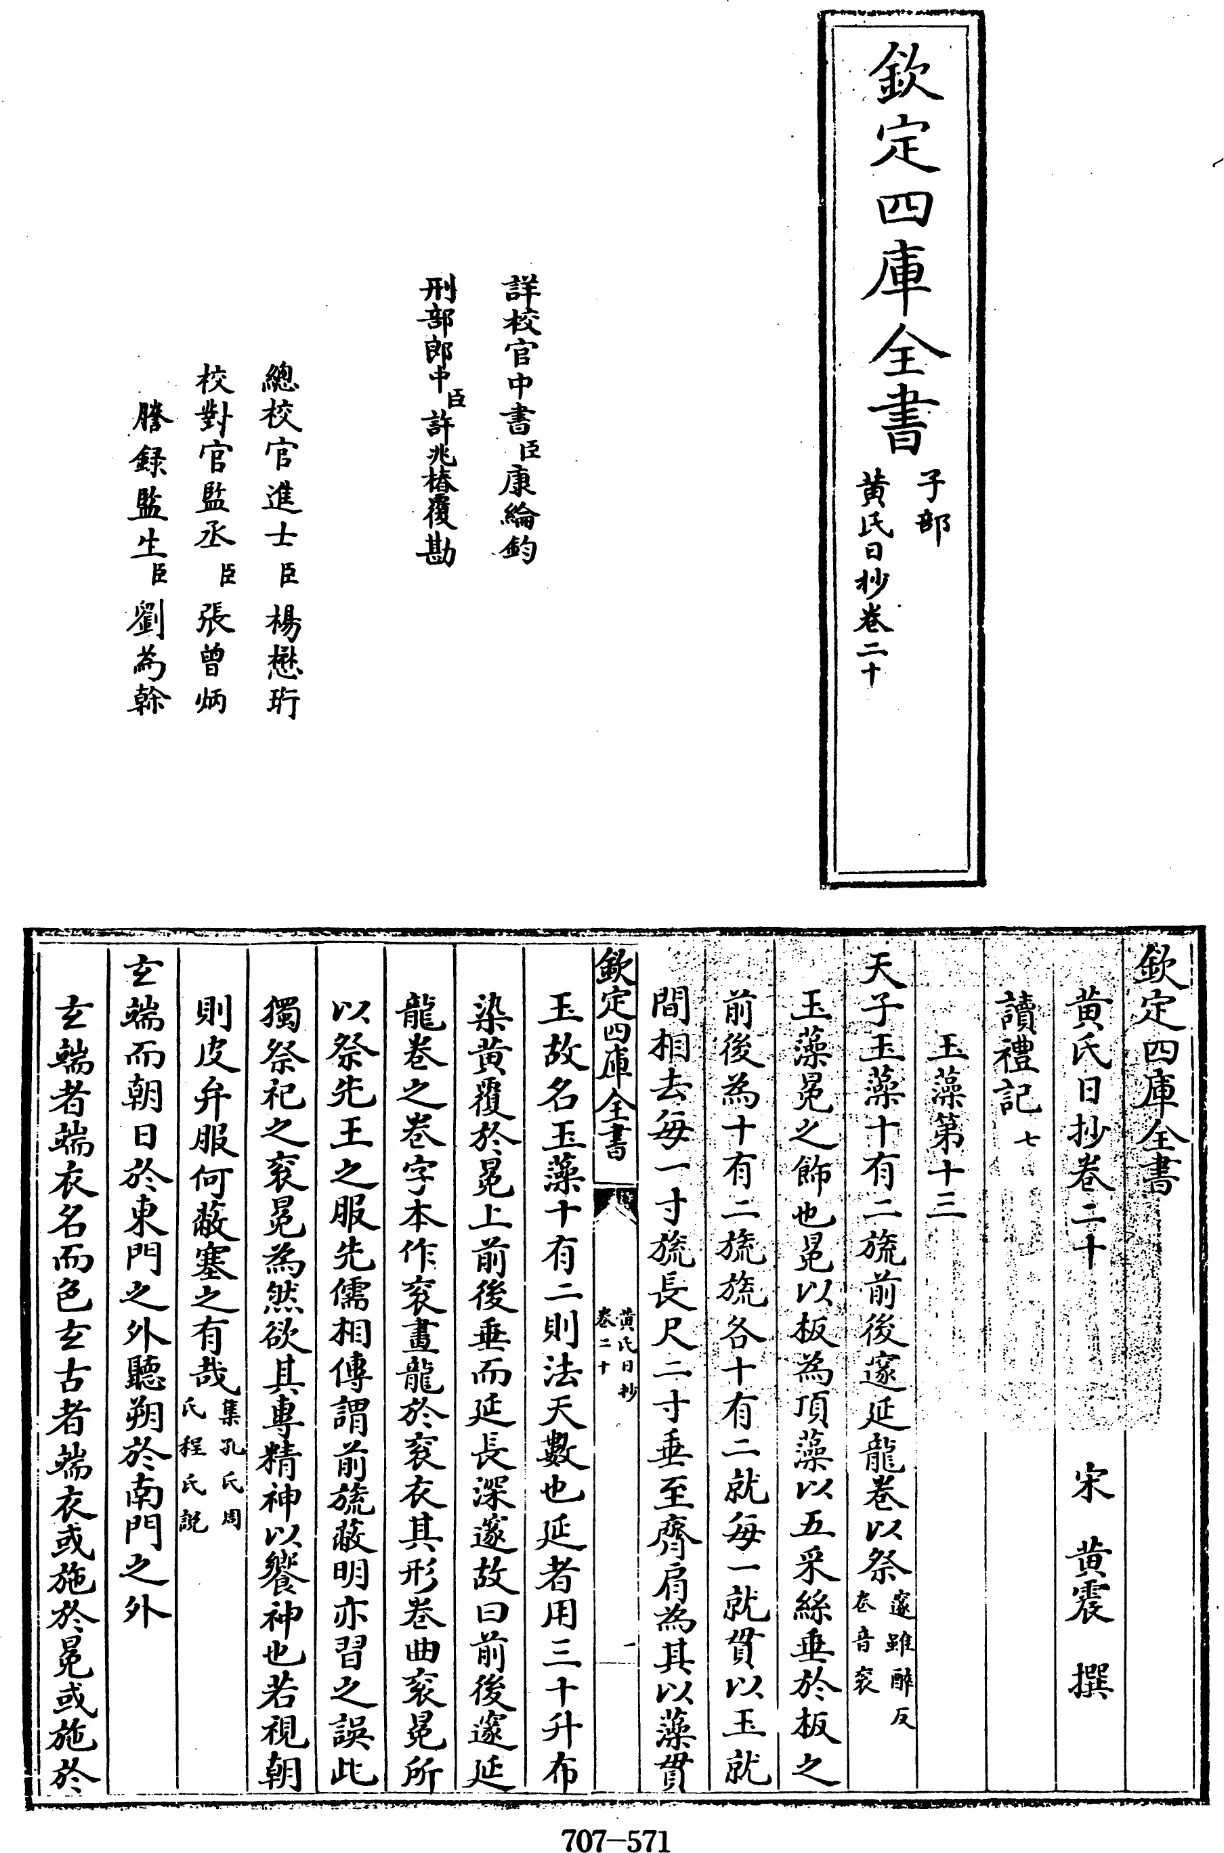 欽定四庫全書
子部
黄氏日抄卷二十
詳校官中書臣康綸鈞
刑部郎中臣許兆椿覆勘
總校官進士臣楊懋珩
校對官監丞臣張曾炳
謄録監生臣劉為幹
欽定四庫全書
黄氏日抄卷二十 宋 黄震 撰
讀禮記七
玉藻第十三
天子玉藻十有二旒前後邃延龍卷以祭邃雖醉反卷音衮
玉藻冕之飾也冕以板為頂藻以五采絲垂於板之
前後為十有二旒旒各十有二就每一就貫以玉就
間相去每一寸旒長尺二寸垂至齊肩為其以藻貫
欽定四庫全書
黄氏日抄
卷二十
一
玉故名玉藻十有二則法天數也延者用三十升布
染黄覆於冕上前後垂而延長深邃故曰前後邃延
龍卷之卷字本作衮畫龍於衮衣其形卷曲衮冕所
以祭先王之服先儒相傳謂前旒蔽明亦習之誤此
獨祭祀之衮冕為然欲其專精神以饗神也若視朝
則皮弁服何蔽塞之有哉集孔氏周氏程氏説
玄端而朝日於東門之外聽朔於南門之外
玄端者端衣名而色玄古者端衣或施於冕或施於
707-571